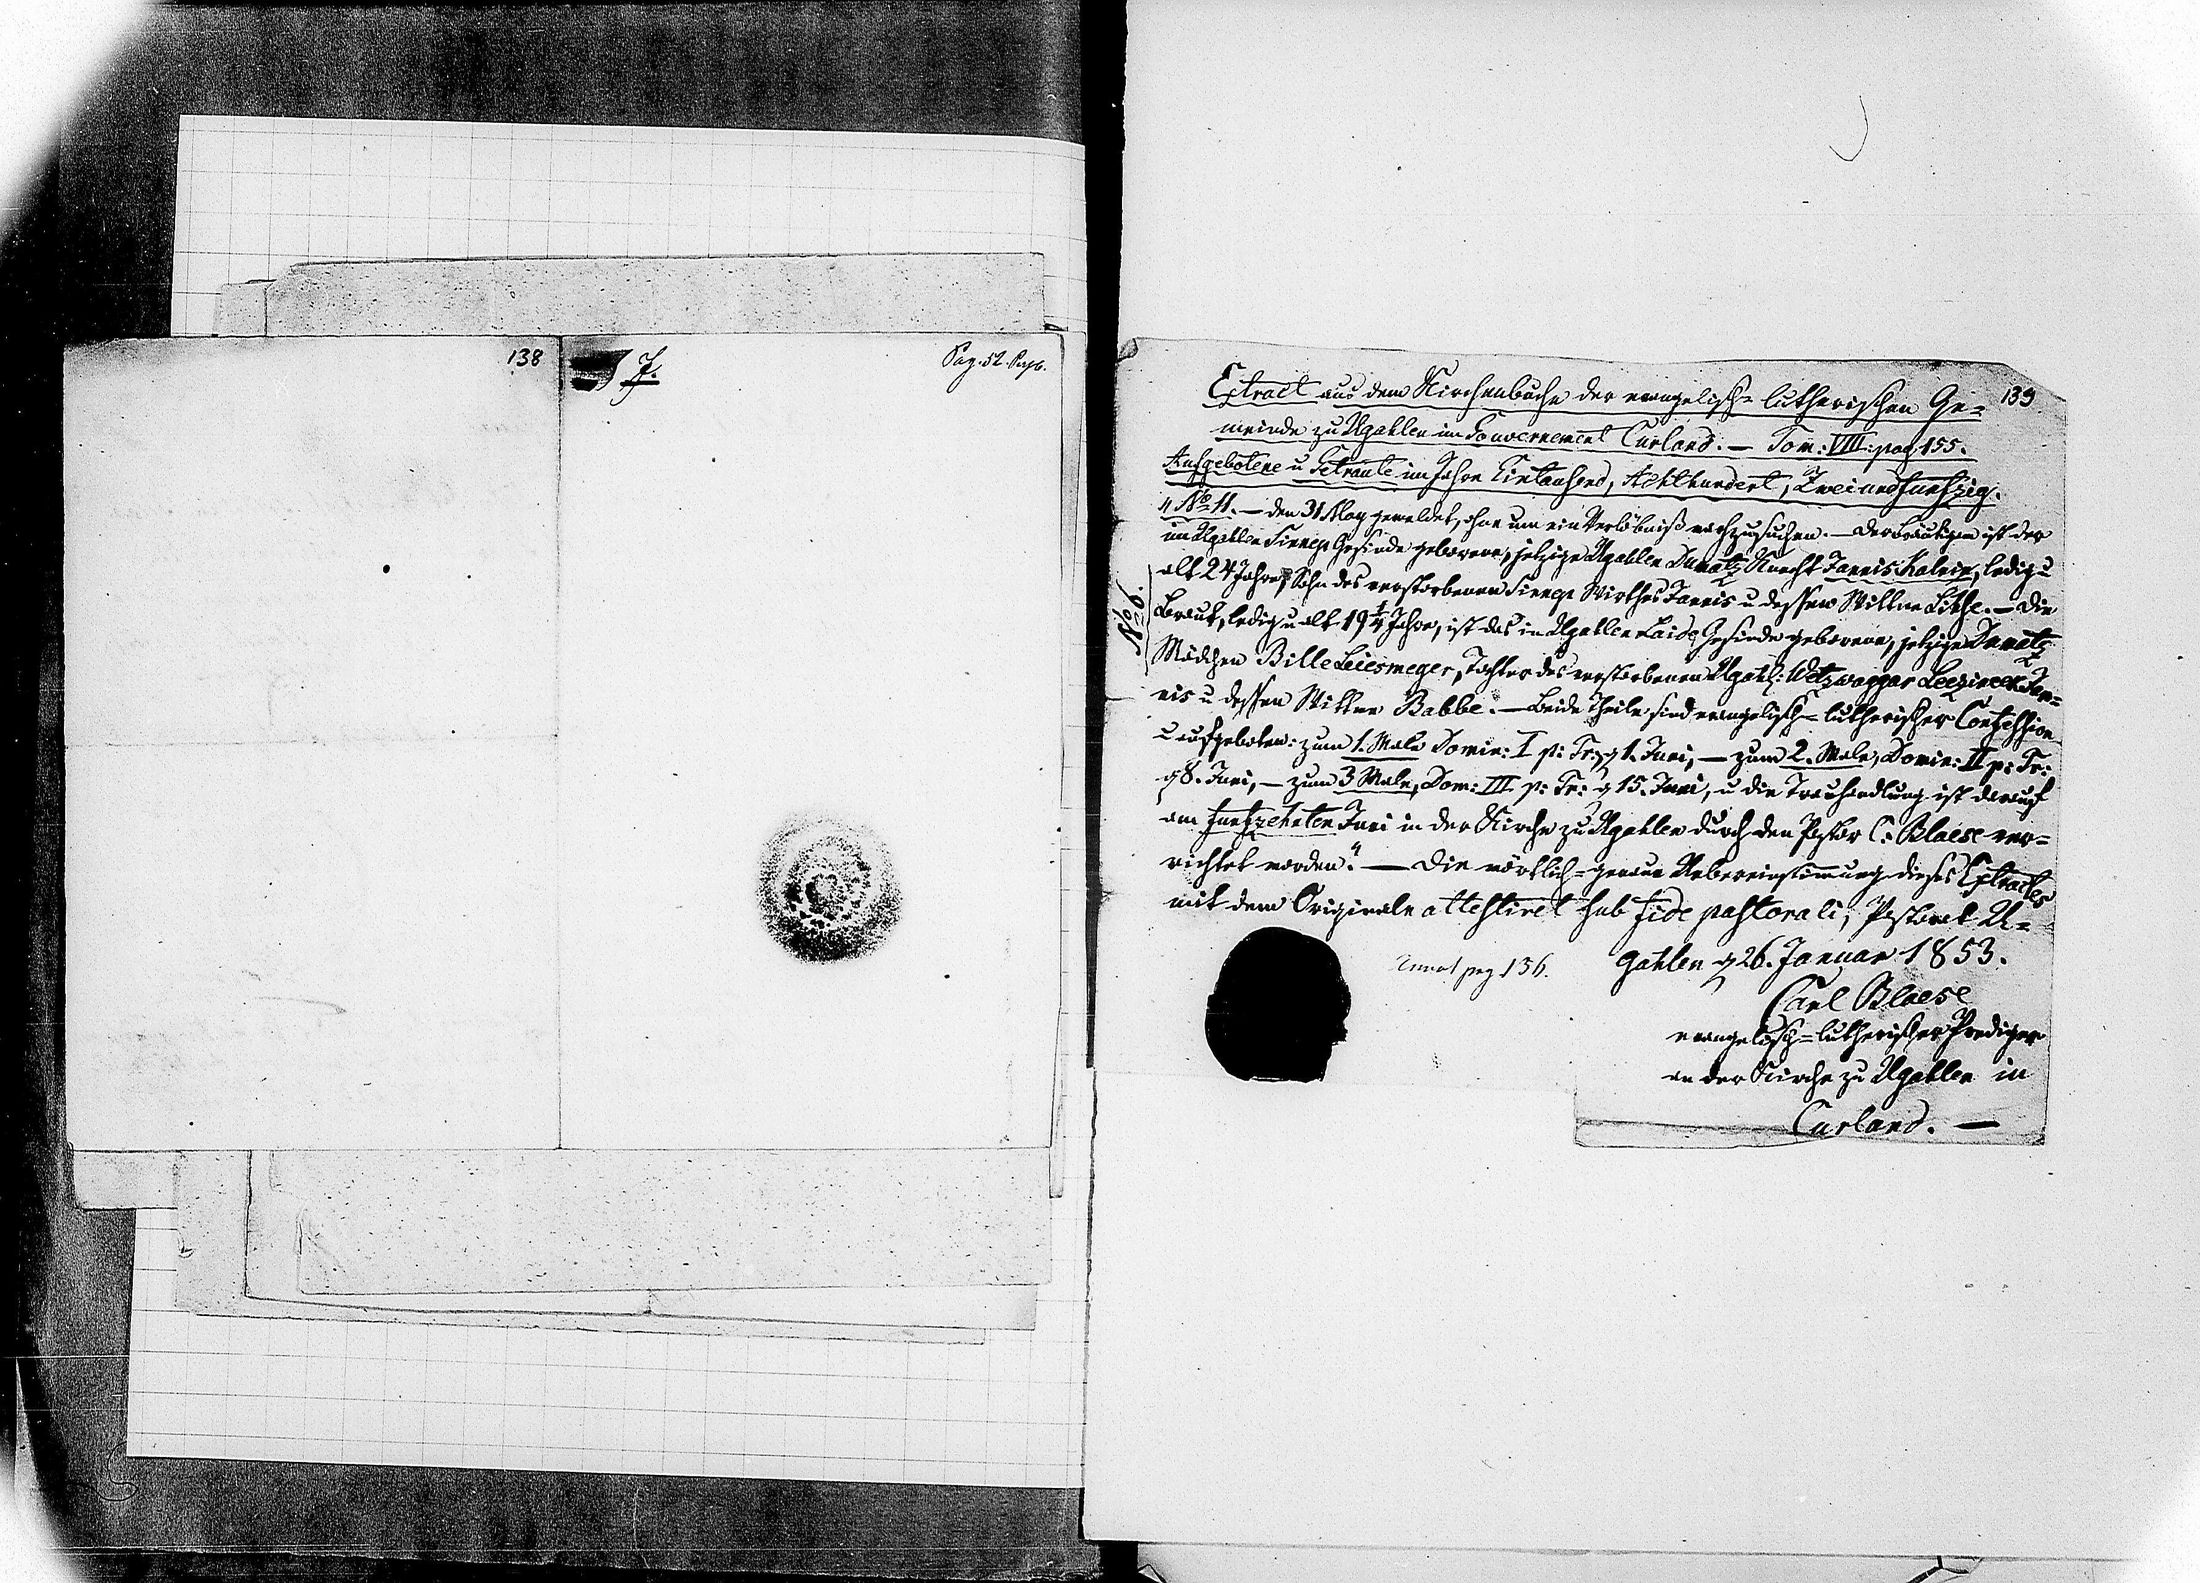 138
7.
Pag. 52.
139
Extract aus dem Kirchenbuche der evangelisch-lutherischen Ge-
meinde zu Ugahlen im Gouvernement Curland. — Tom: VIII: pag: 155.
Aufgebotene u Getraute im Jahre Eintausend, Achthundert, Zweiundfunfzig.
„No 11. — den 31 May gemeldet, ohne um ein Verlöbniß nachzusuchen. — Der Bräutigam ist der
im Ugahlen Sinnep Gesinde geborene, jetzige Ugahlen Knecht Jannis Kalnin, ledig u
alt 24 Jahre, Sohn des verstorbenen Sinnep Wirthes Jannis u dessen Wittwe Lihse. — Die
No 6.
Braut, ledig u alt 19¼ Jahre, ist das im Ugahlen Gesinde geborene, jetzige
Mädchen Bille Leiesmeger, Tochter des verstorbenen Ugahl: Jan-
nis u dessen Wittwe Babbe. — Beide Theile sind evangelisch-lutherischer Confession
u aufgeboten: zum 1. Male Domin: I p: Tr: d 1. Juni, — zum 2. Male, Domin: II p: Tr:
d 8. Juni, — zum 3 Male, Dom: III p: Tr: d 15. Juni, u die Trauhandlung ist darauf
am funfzehnten Juni in der Kirche zu Ugahlen durch den Pastor C: Blaese ver-
richtet worden.“ — Die wörtlich-genaue Uebereinstimmung dieses Extractes
mit dem Originale attestiret sub fide pastorali; Pastorat U-
gahlen d 26. Januar 1853.
pag 136.
Carl Blaese
evangelisch-lutherischer Prediger
an der Kirche zu Ugahlen in
Curland. —